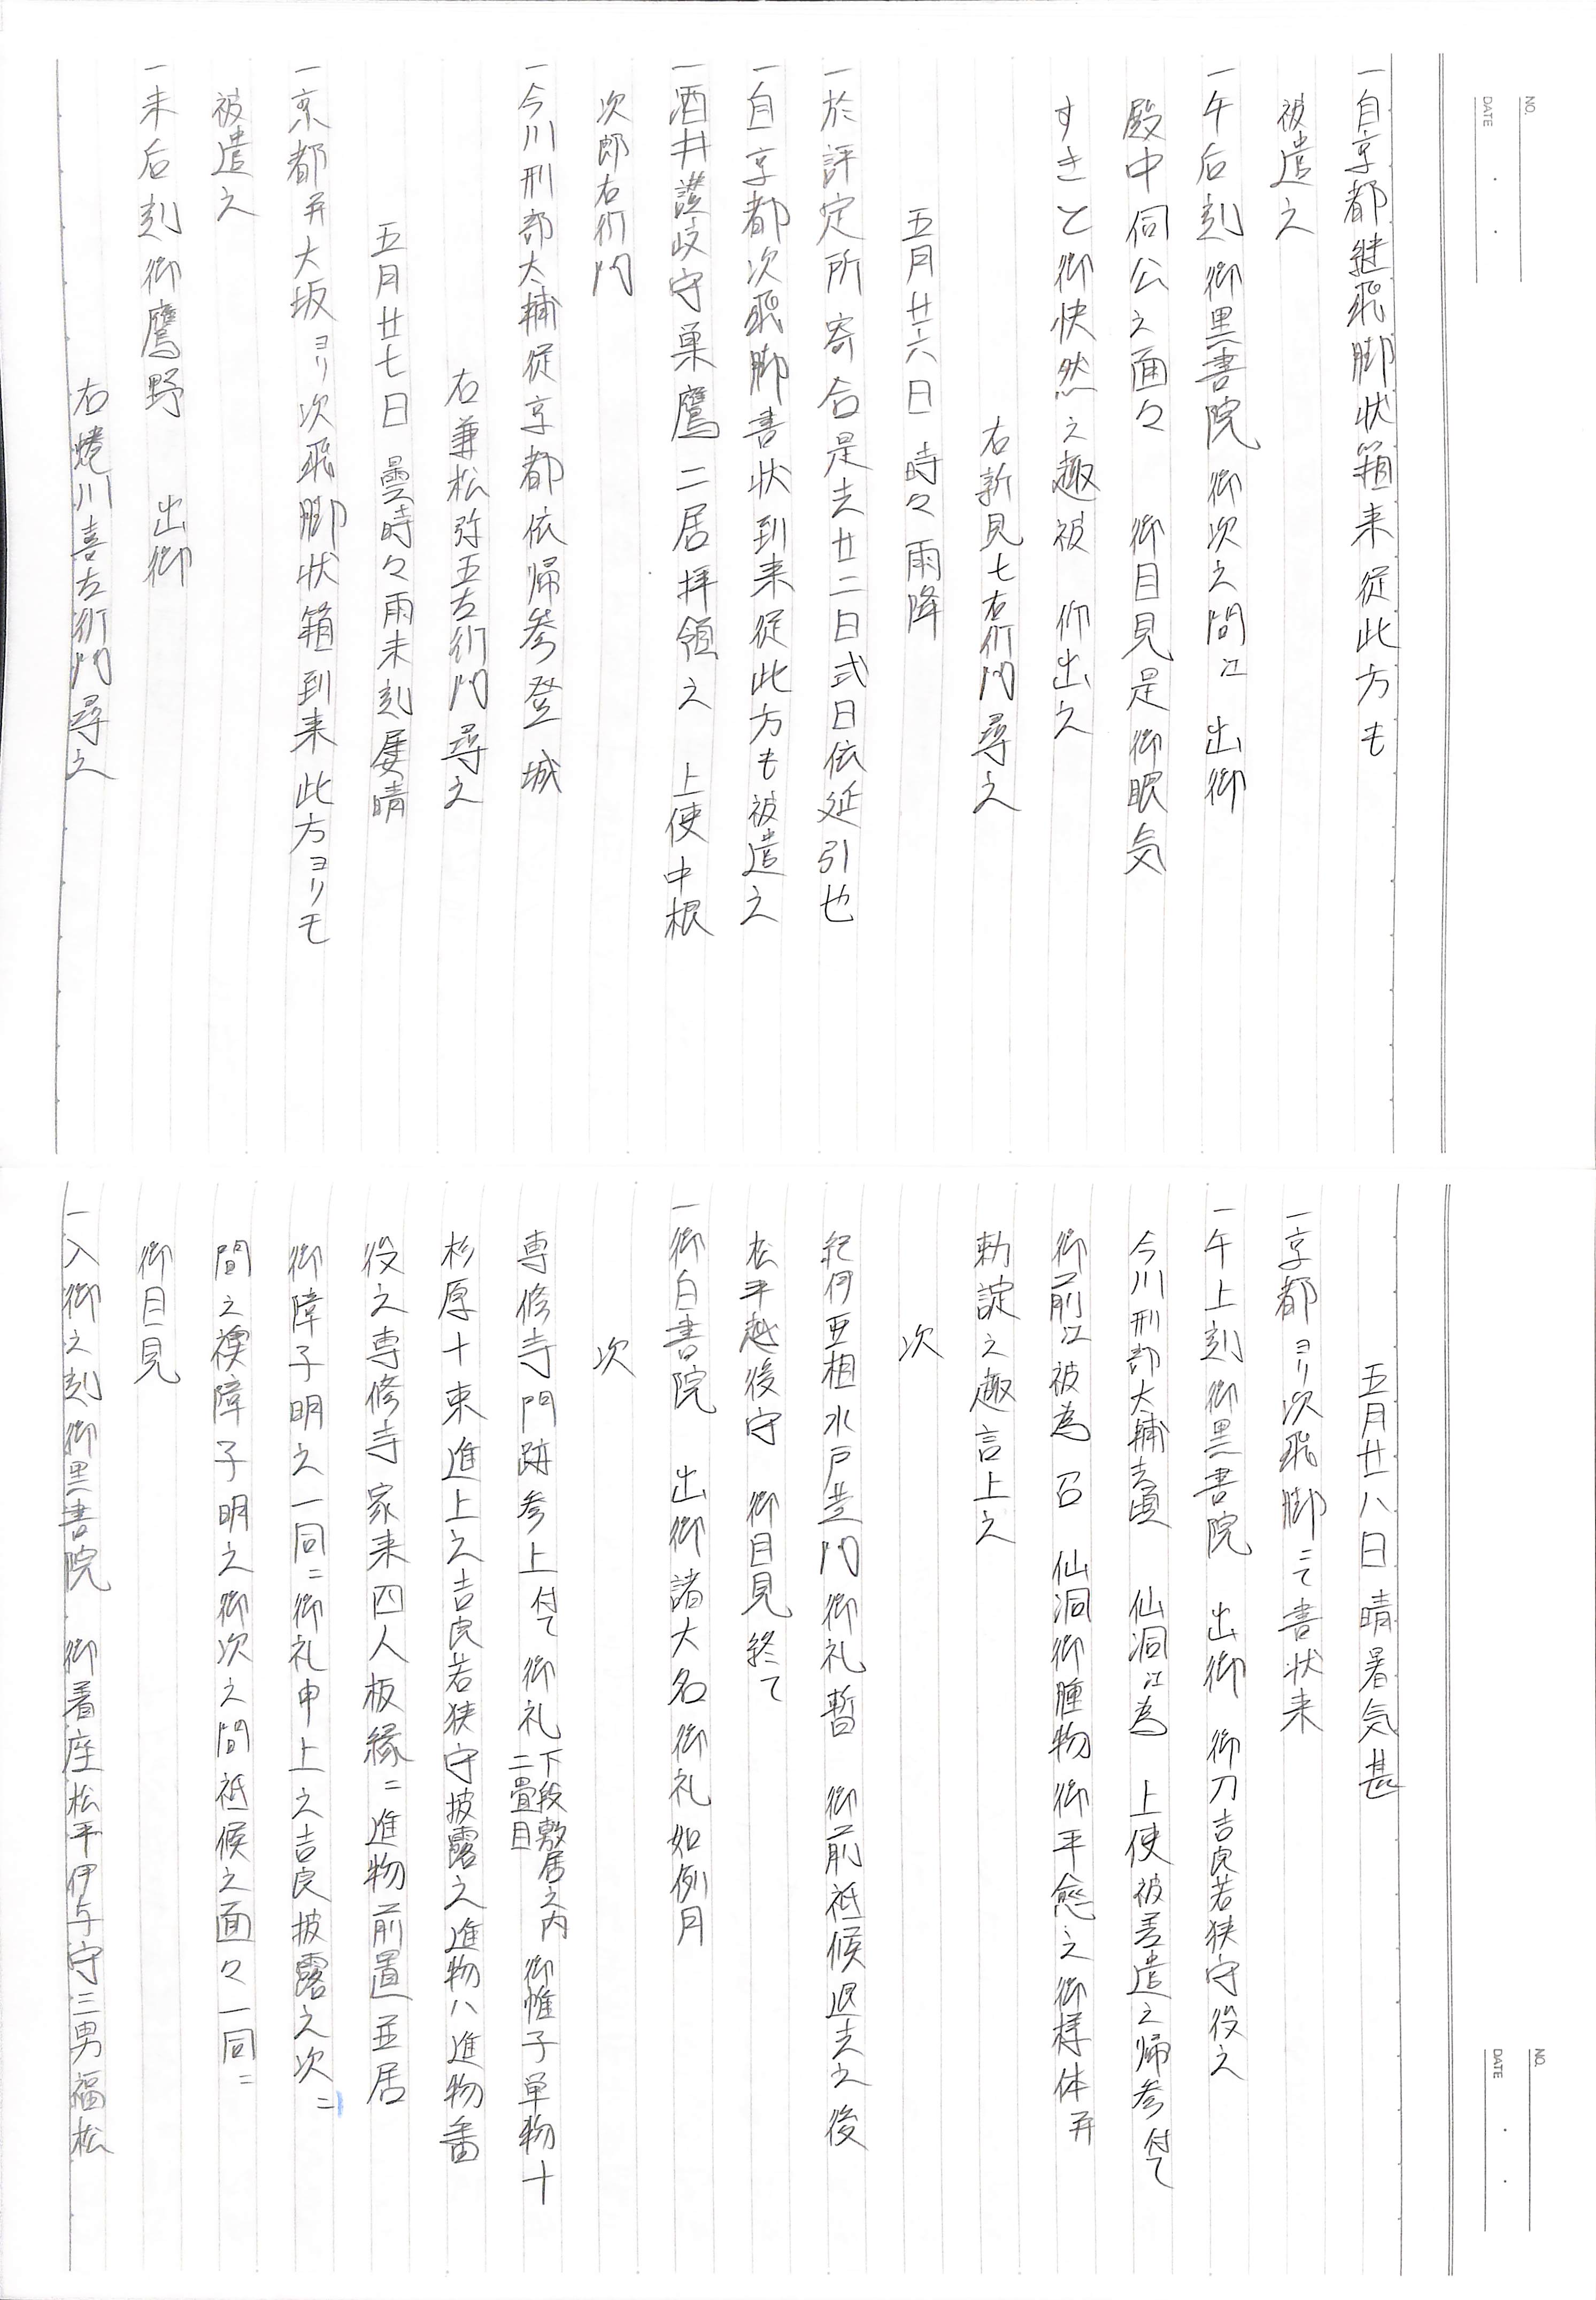 NO.
DATE ・ ・
一自京都継飛脚状箱来従此方も
被遣之
一午后刻御黒書院御次之間江 出御
殿中伺公之面々 御目見是御眼気
すきと御快然之趣被 仰出之
右新見七右衛門尋之
五月廿六日 時々雨降
一於評定所寄合是去廿二日式日依延引也
一自京都次飛脚書状到来従此方も被遣之
一酒井讃岐守巣鷹二居拝領之 上使中根
次郎右衛門
一今川刑部太輔従京都依帰参登 城
右兼松弥五左衛門尋之
五月廿七日 曇時々雨未刻屡晴
一京都并大坂ヨリ次飛脚状箱到来此方ヨリモ
被遣之
一未后刻御鷹野 出御
右蜷川喜左衛門尋之
NO.
DATE ・ ・
五月廿八日晴暑気甚
一京都ヨリ次飛脚ニて書状来
一午上刻御黒書院 出御 御刀吉良若狭守役之
今川刑部大輔去頃 仙洞江為 上使被差遣之帰参付て
御前江被為 召 仙洞御腫物御平愈之御様体并
勅諚之趣言上之
次
紀伊亜相水戸黄門御礼暫 御前祗候退去之後
松平越後守 御目見終て
一御白書院 出御諸大名御礼如例月
次
専修寺門跡参上付て御礼下段敷居之内二畳目 御帷子単物十
杉原十束進上之吉良若狭守披露之進物ハ進物番
役之専修寺家来四人板縁ニ進物前置並居
御障子明之一同ニ御礼申上之吉良披露之次ニ
間之襖障子明之御次之間祗候之面々一同ニ
御目見
一入御之刻御黒書院 御着座松平伊与守三男福松